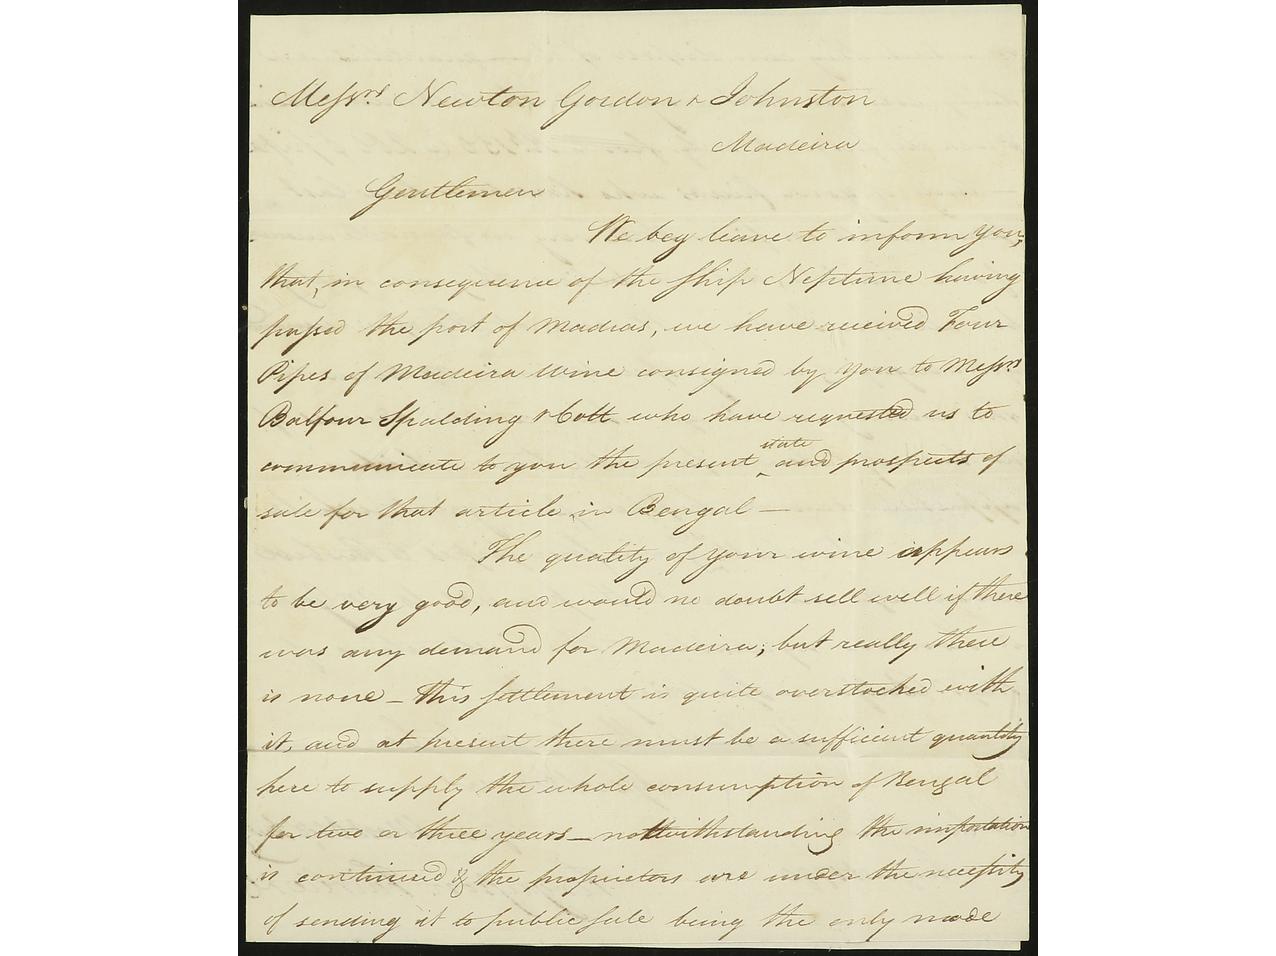 Messrs Newton Gordon & Johnston
Madeira
Gentlemen
We beg leave to inform you,
that, in consequence of the ship Neptune having
passed the port of Madras, we have received Four
Pipes of Madeira Wine consigned by you to Messrs
Balfour Spalding & Co who have requested us to
communicate to you the present state and prospects of
sale for that article in Bengal —
The quality of your wine appears
to be very good, and would no doubt sell well if there
was any demand for Madeira, but really there
is none — this settlement is quite overstocked with
it, and at present there must be a sufficient quantity
here to supply the whole consumption of Bengal
for two or three years — notwithstanding the importation
is continued & the proprietors are under the necessity
of sending it to public sale being the only mode